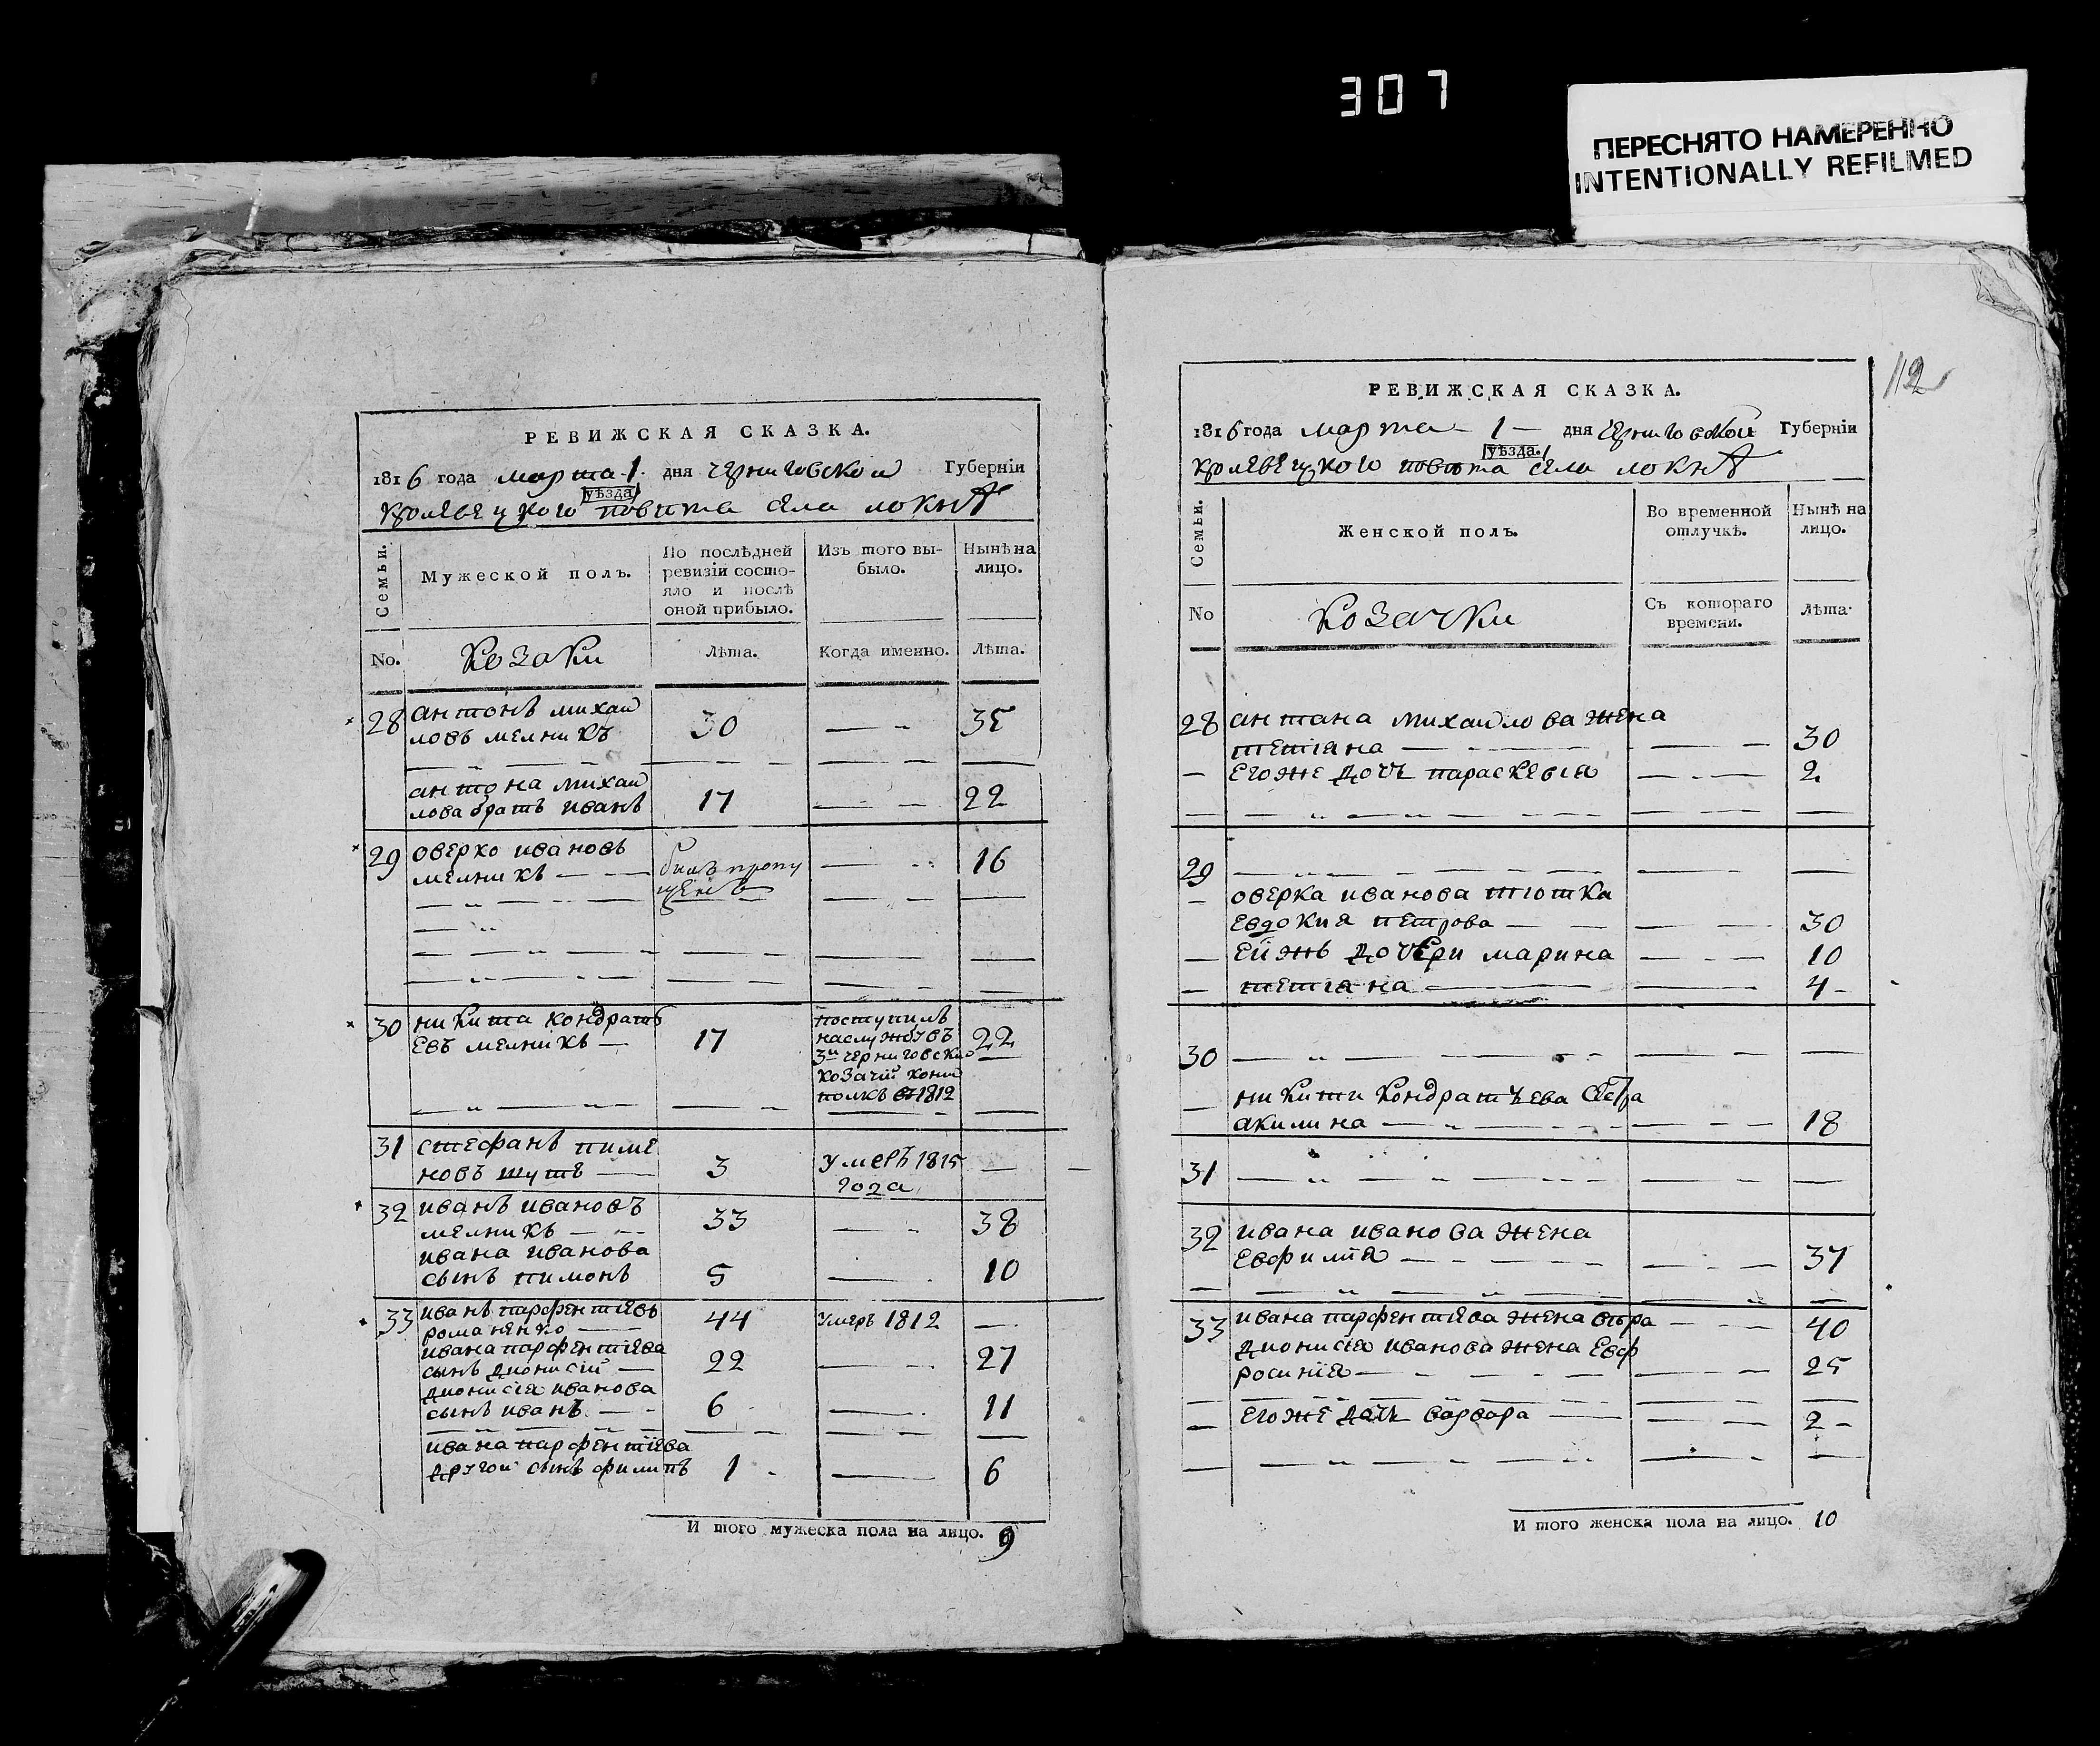 307
ПЕРЕСНЯТО НАМЕРЕННО
INTENTIONALLY REFILMED
РЕВИЖСКАЯ СКАЗКА.
1816 года марта 1 дня черниговской Губерніи
уѣзда
кролевецкого повѣта села локнѣ
Семьи.
Мужеской полъ.
По послѣдней
ревизіи состо-
яло и послѣ
оной прибыло.
Изъ того вы-
было.
Нынѣ на
лицо.
No. козаки Лѣта. Когда именно. Лѣта.
28 антонъ михай 30 — 35
ловъ мелникъ
антона михай
лова братъ иванъ 17 — 22
29 оверко ивановъ билъ пропу — 16
мелникъ щенъ
30 никита кондрать 17 поступилъ 22
евъ мелникъ на службу въ
3й черниговский
козачій кони
полкъ въ 1812
31 стефанъ пиме 3 умеръ 1815 —
новъ шутъ года
32 иванъ ивановъ 33 — 38
мелникъ
ивана иванова
сынъ пимонъ 5 — 10
33 иванъ парфентіевъ 44 умеръ 1812 —
романенко
ивана парфентіева
сынъ дионисій 22 — 27
дионисія иванова
сынъ иванъ 6 — 11
ивана парфентіева
другой сынъ филипъ 1 — 6
И того мужеска пола на лицо. 9
112
РЕВИЖСКАЯ СКАЗКА.
1816 года марта 1 дня черниговской Губерніи
уѣзда
кролевецкого повѣта села локнѣ
Семьи.
Женской полъ.
Во временной
отлучкѣ.
Нынѣ на
лицо.
No козачки Съ котораго
времени. Лѣта
28 антона михайлова жена
тетіяна — 30
— егоже дочь параскевія — 2
29 —
— оверка иванова тютка
евдокия петрова — 30
— ей жъ дочери марина — 10
— тетіана — 4
30 —
— никити кондратъева сестра
акилина — 18
31 —
32 ивана иванова жена
евфимія — 37
33 ивана парфентіева жена — 40
дионисія иванова жена евф
росинія — 25
— егоже дочь варвара — 2
И того женска пола на лицо. 10